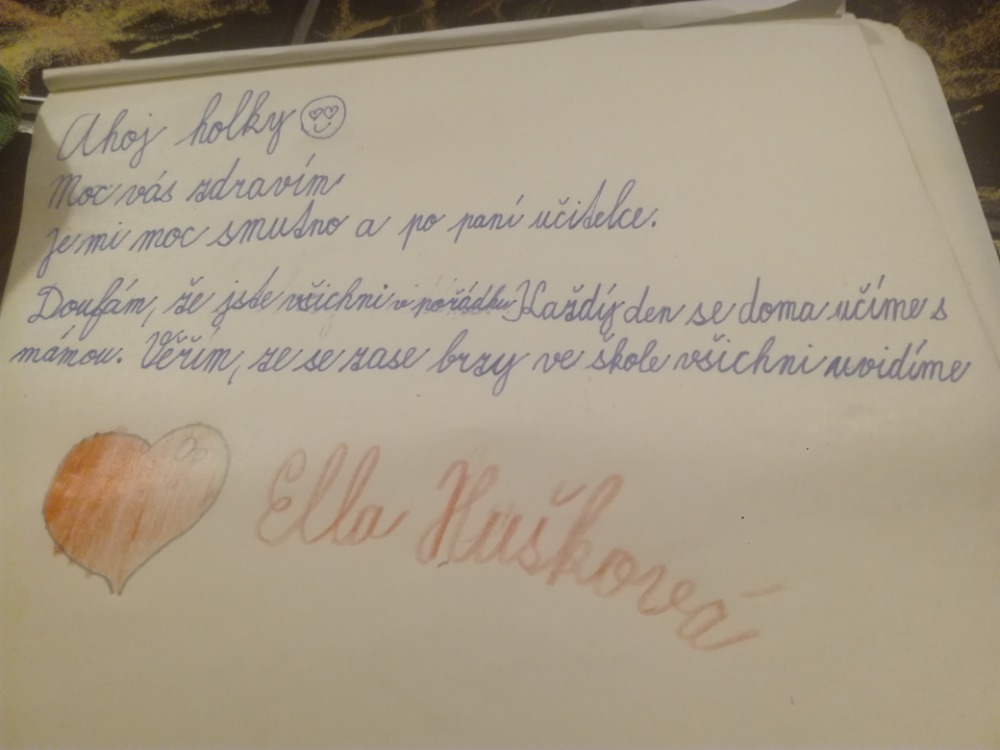 Ahoj holky
Moc vás zdravím
je mi moc smutno a po paní učitelce.
Doufám, že jste všichni v pořádku Každý den se doma učíme s
mámou. Věřím, ze se zase brzy ve škole všichni uvidíme
Ella Hušková